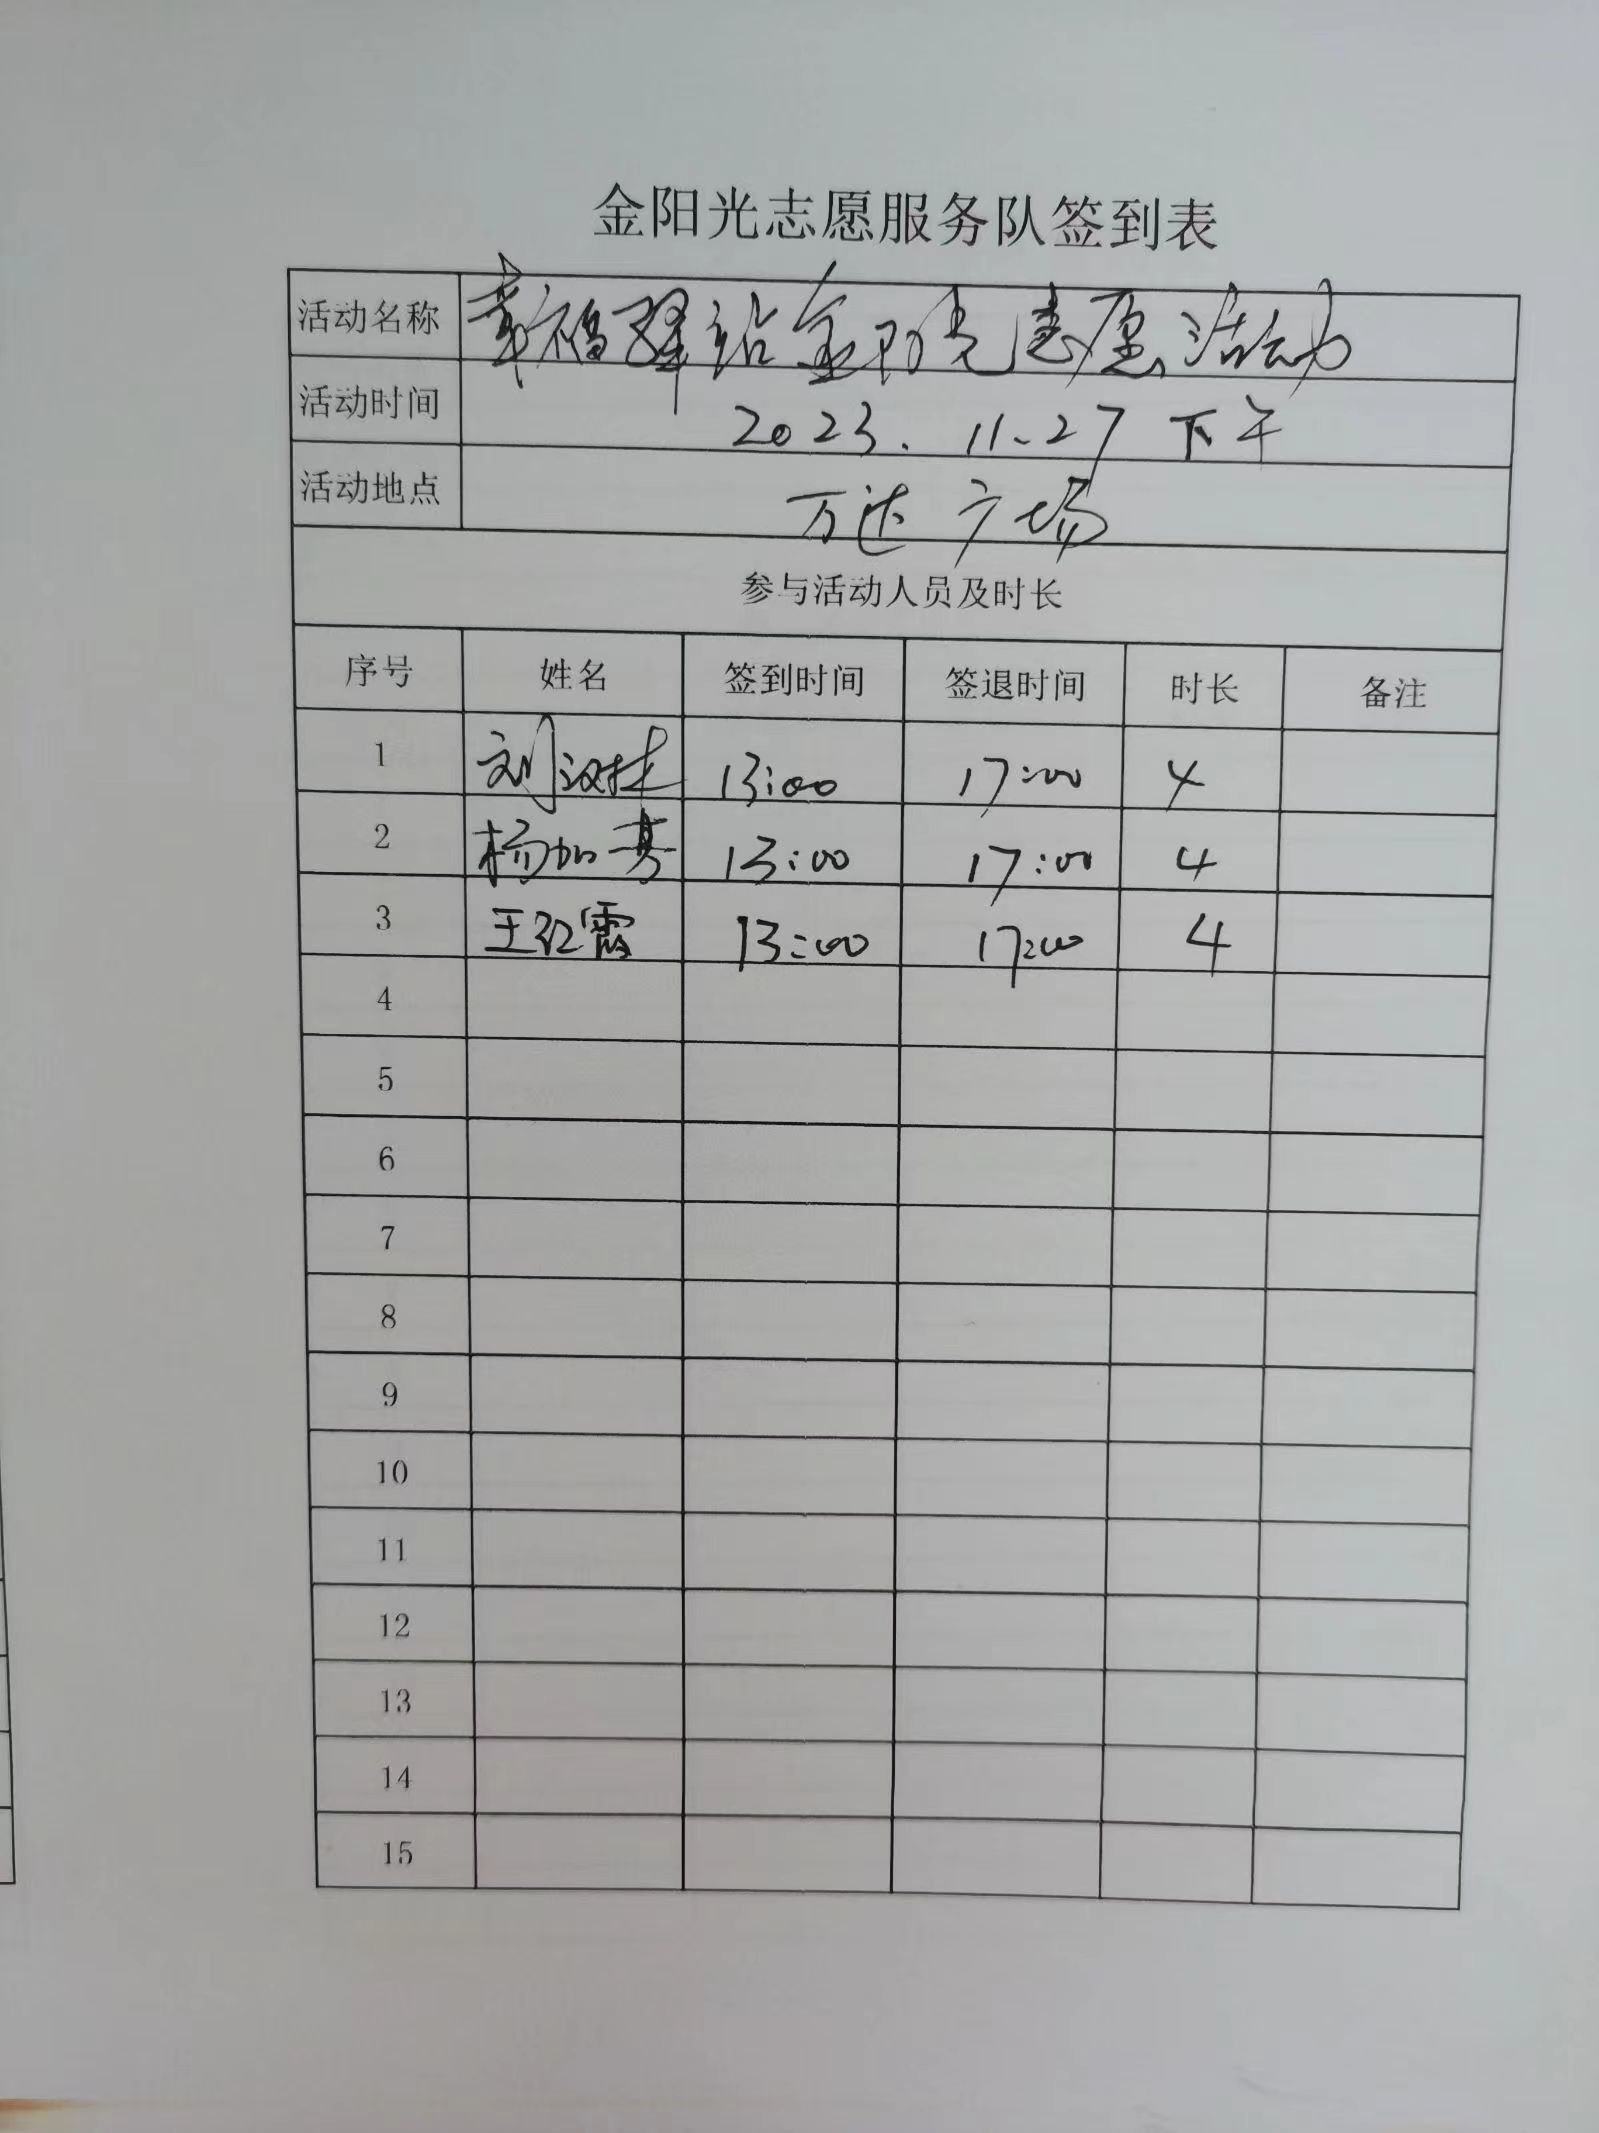 金阳光志愿服务队签到表
活动名称 幸福驿站金阳光志愿活动
活动时间 2023.11.27 下午
活动地点 万达广场
参与活动人员及时长
序号 姓名 签到时间 签退时间 时长 备注
1 刘 13:00 17:00 4
2 杨加 13:00 17:00 4
3 王红霞 13:00 17:00 4
4
5
6
7
8
9
10
11
12
13
14
15